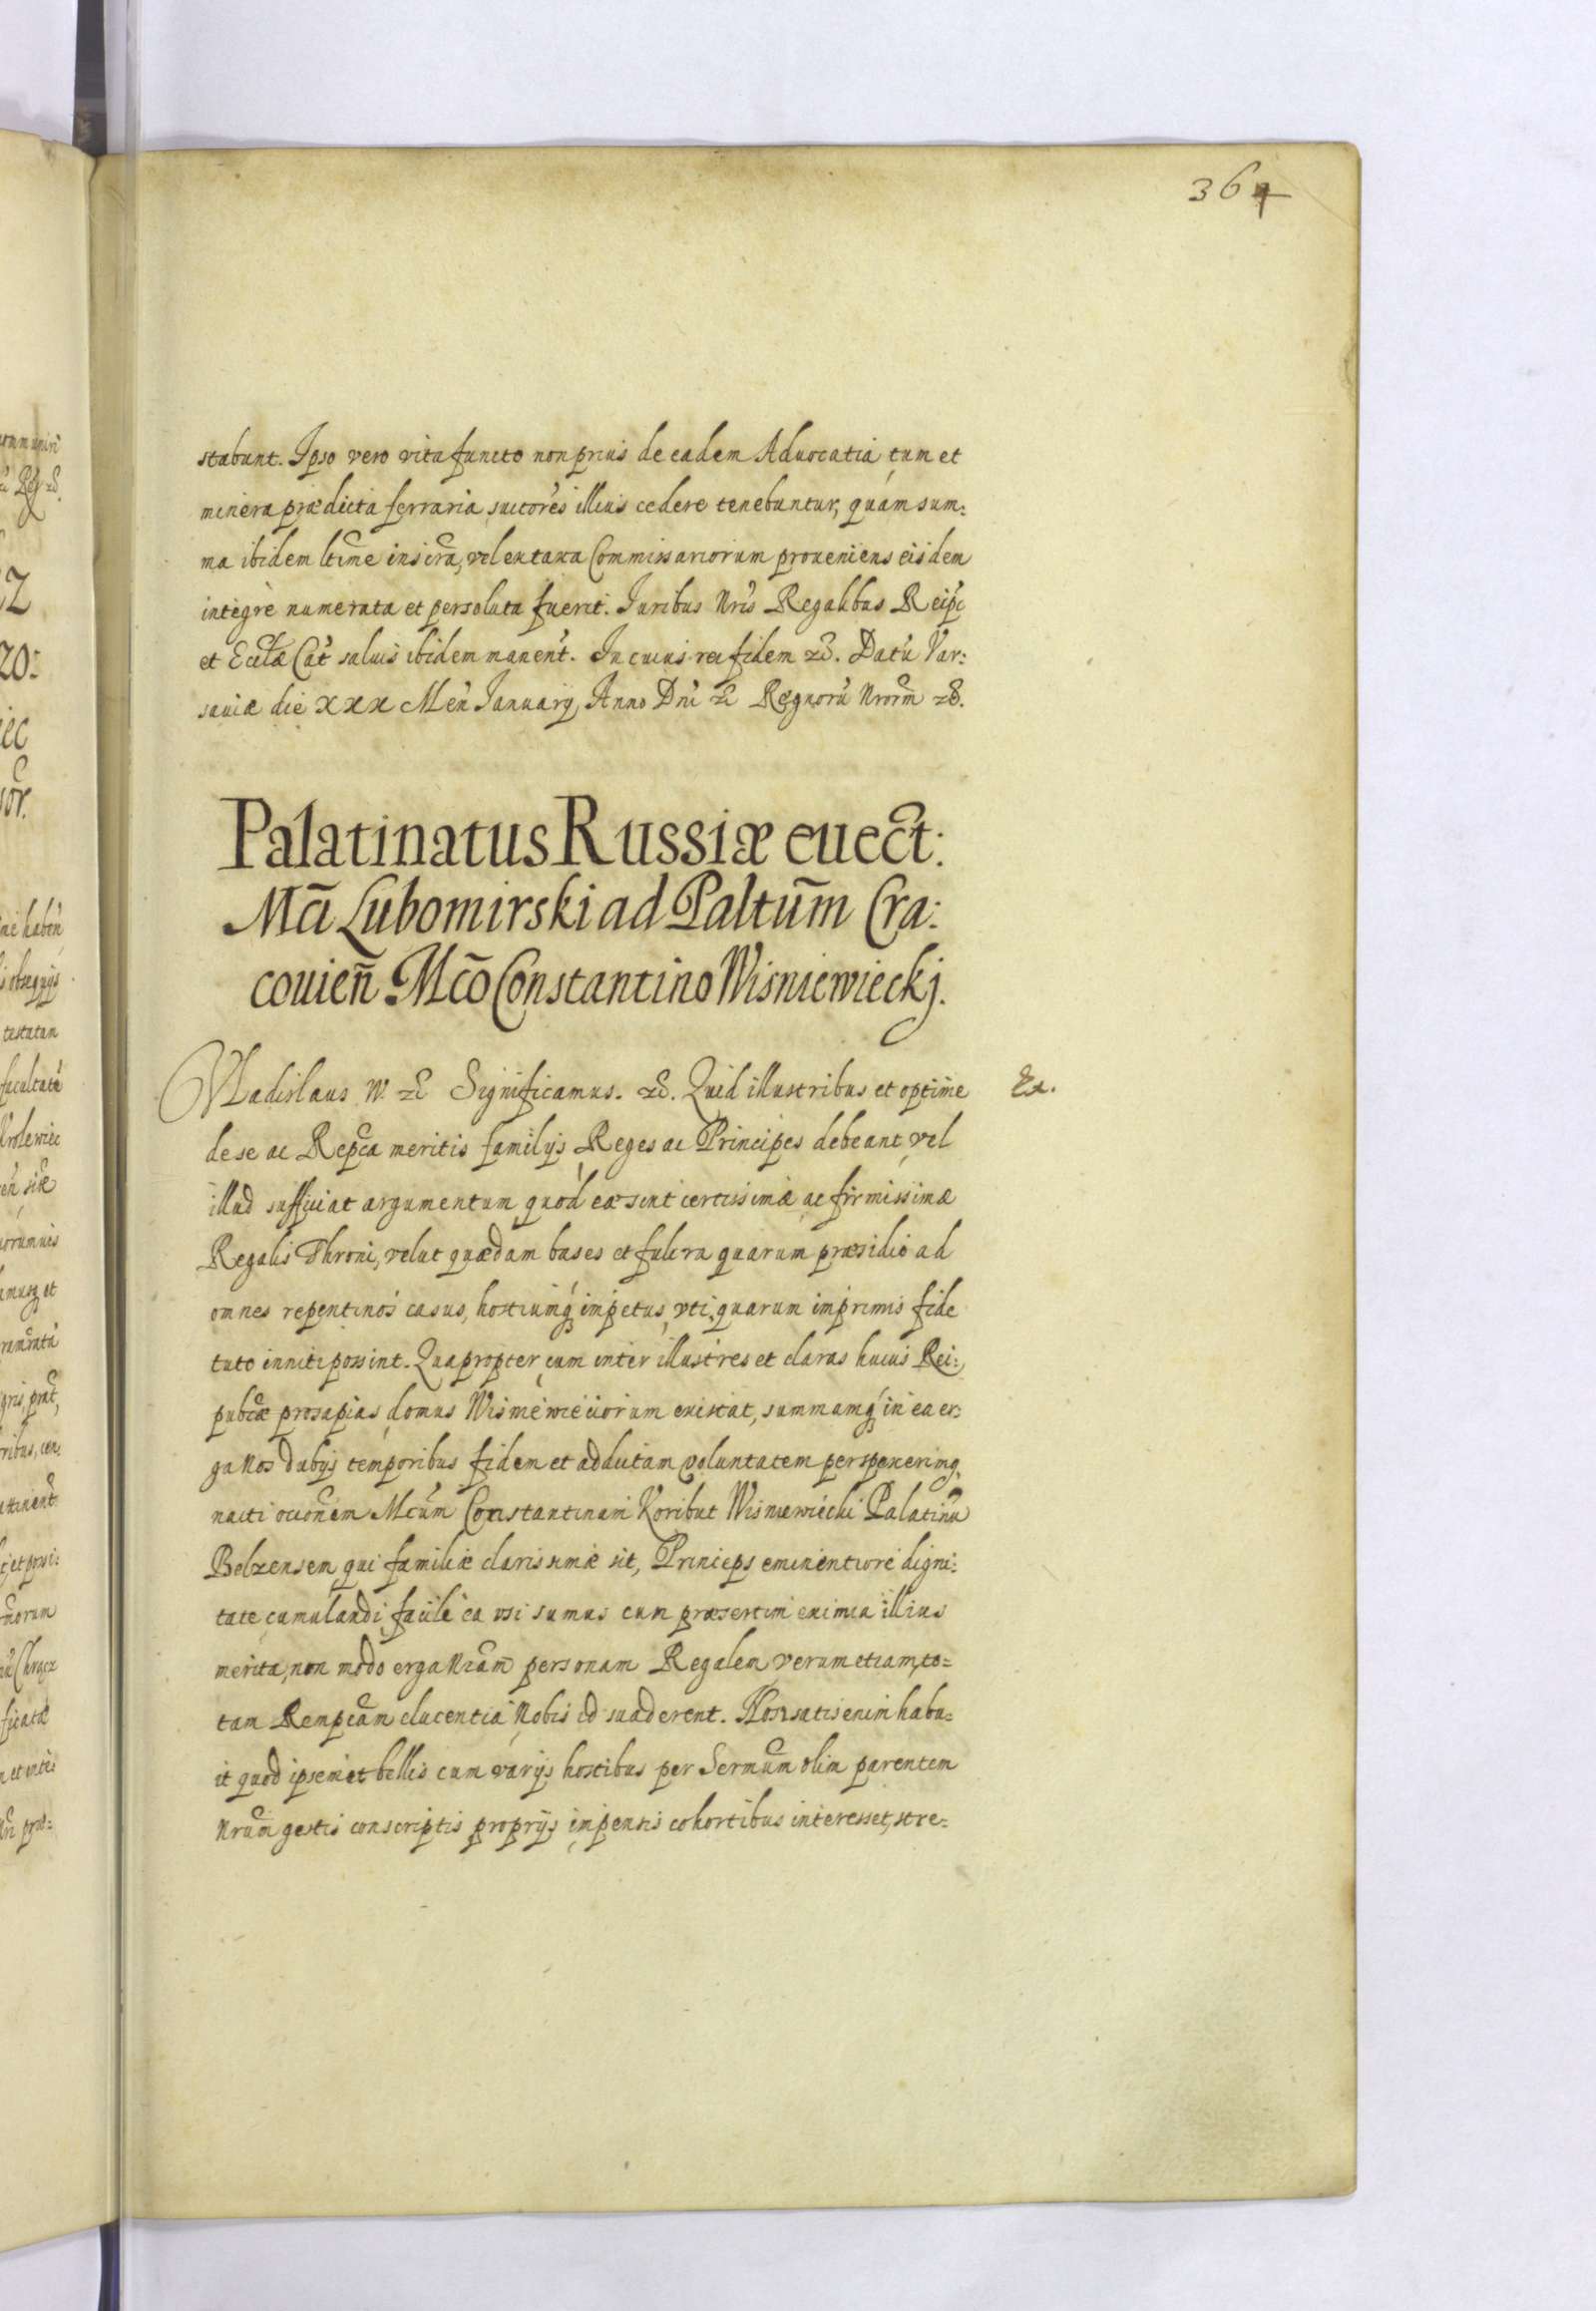 364
stabunt. Ipso vero vita functo non prius de eadem Aduocatia, tum et
minera prædicta ferraria, suctores illius cedere tenebuntur, quám sum:
ma ibidem ltime inscra, vel ex taxa Commissariorum proueniens eisdem
integrè numerata et persoluta fuerit. Iuribus Nris Regalibus Reipc
et Ecclæ Cat saluis ibidem manent. In cuius rei fidem &c. Datu Var:
sauiæ die XXX Men Ianuarij Anno Dni &c Regnorũ Nrorm &c.
Palatinatus Russiæ euect:
Mci Lubomirski ad Paltum Cra:
couien. Mco Constantino Wisniewieckj.
Vladislaus IV. &c Significamus. &c. Quid illustribus et optime
de se ac Repca meritis familijs Reges ac Principes debeant, vel
illud sufficiat argumentum, quod eæ sint certissimæ ac firmissimæ
Regalis Throni, velut quædam bases et fulcra quarum præsidio ad
omnes repentinos casus, hostiumq impetus, vti quarum imprimis fide
tuto inniti possint. Quapropter, cum inter illustres et claras huius Rei:
pubcæ prosapias, domus Wisniewieciorum existat, summamq in ea er:
ga Nos dubijs temporibus fidem et addictam voluntatem perspexerimq,
nacti occonem Mcum Constantinum Koribut Wisniewiecki Palatinũ
Belzensem, qui familiæ clarissimæ sit, Princeps eminentiore digni:
tate cumulandi, facilè ea vsi sumus cum præsertim eximia illius
merita, non modo erga Nram personam Regalem, verum etiam, to=
tam Rempcam elucentia Nobis id suaderent. Non satis enim habu=
it quod ipsemet bellis cum varijs hostibus per Sermum olim parentem
Nrum gestis conscriptis proprijs impensis cohortibus interesset, stre=
Ex.